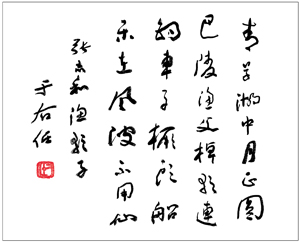 青草湖中月正圓
巴陵漁父棹歌連
釣車子橛頭船
樂在風波不用仙
張志和漁歌子
于右任